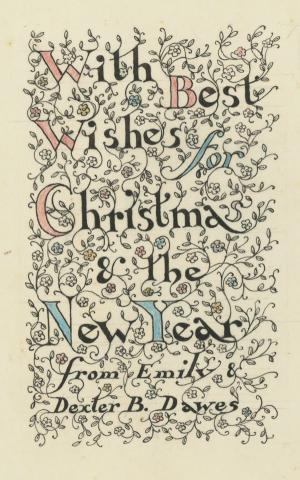 With Best
Wishes for
Christmas
& the
New Year
from Emily &
Dexter B. Dawes